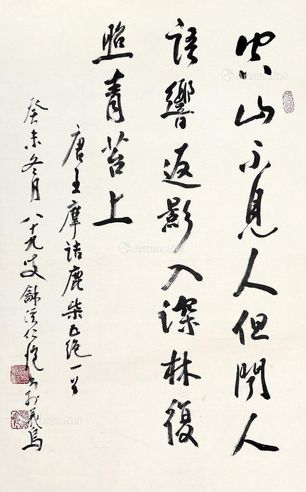 空山不见人但闻人
语响返影入深林復
照青苔上
唐王摩诘鹿柴五绝一首
癸未冬月八十九叟